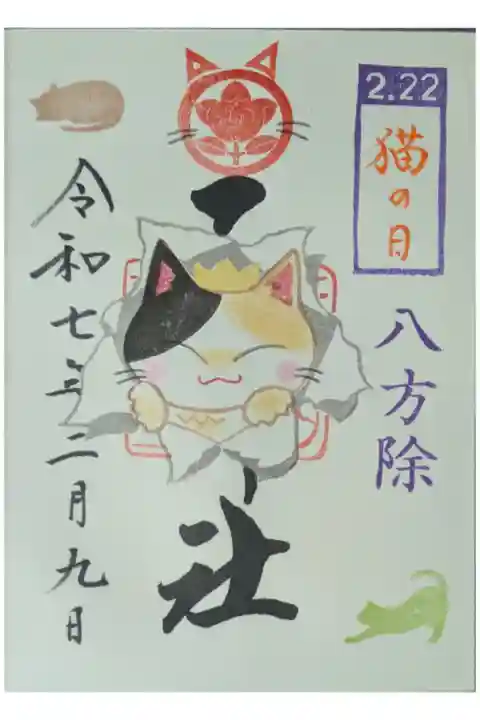 2.22
猫の日
八方除
社
令和七年二月九日